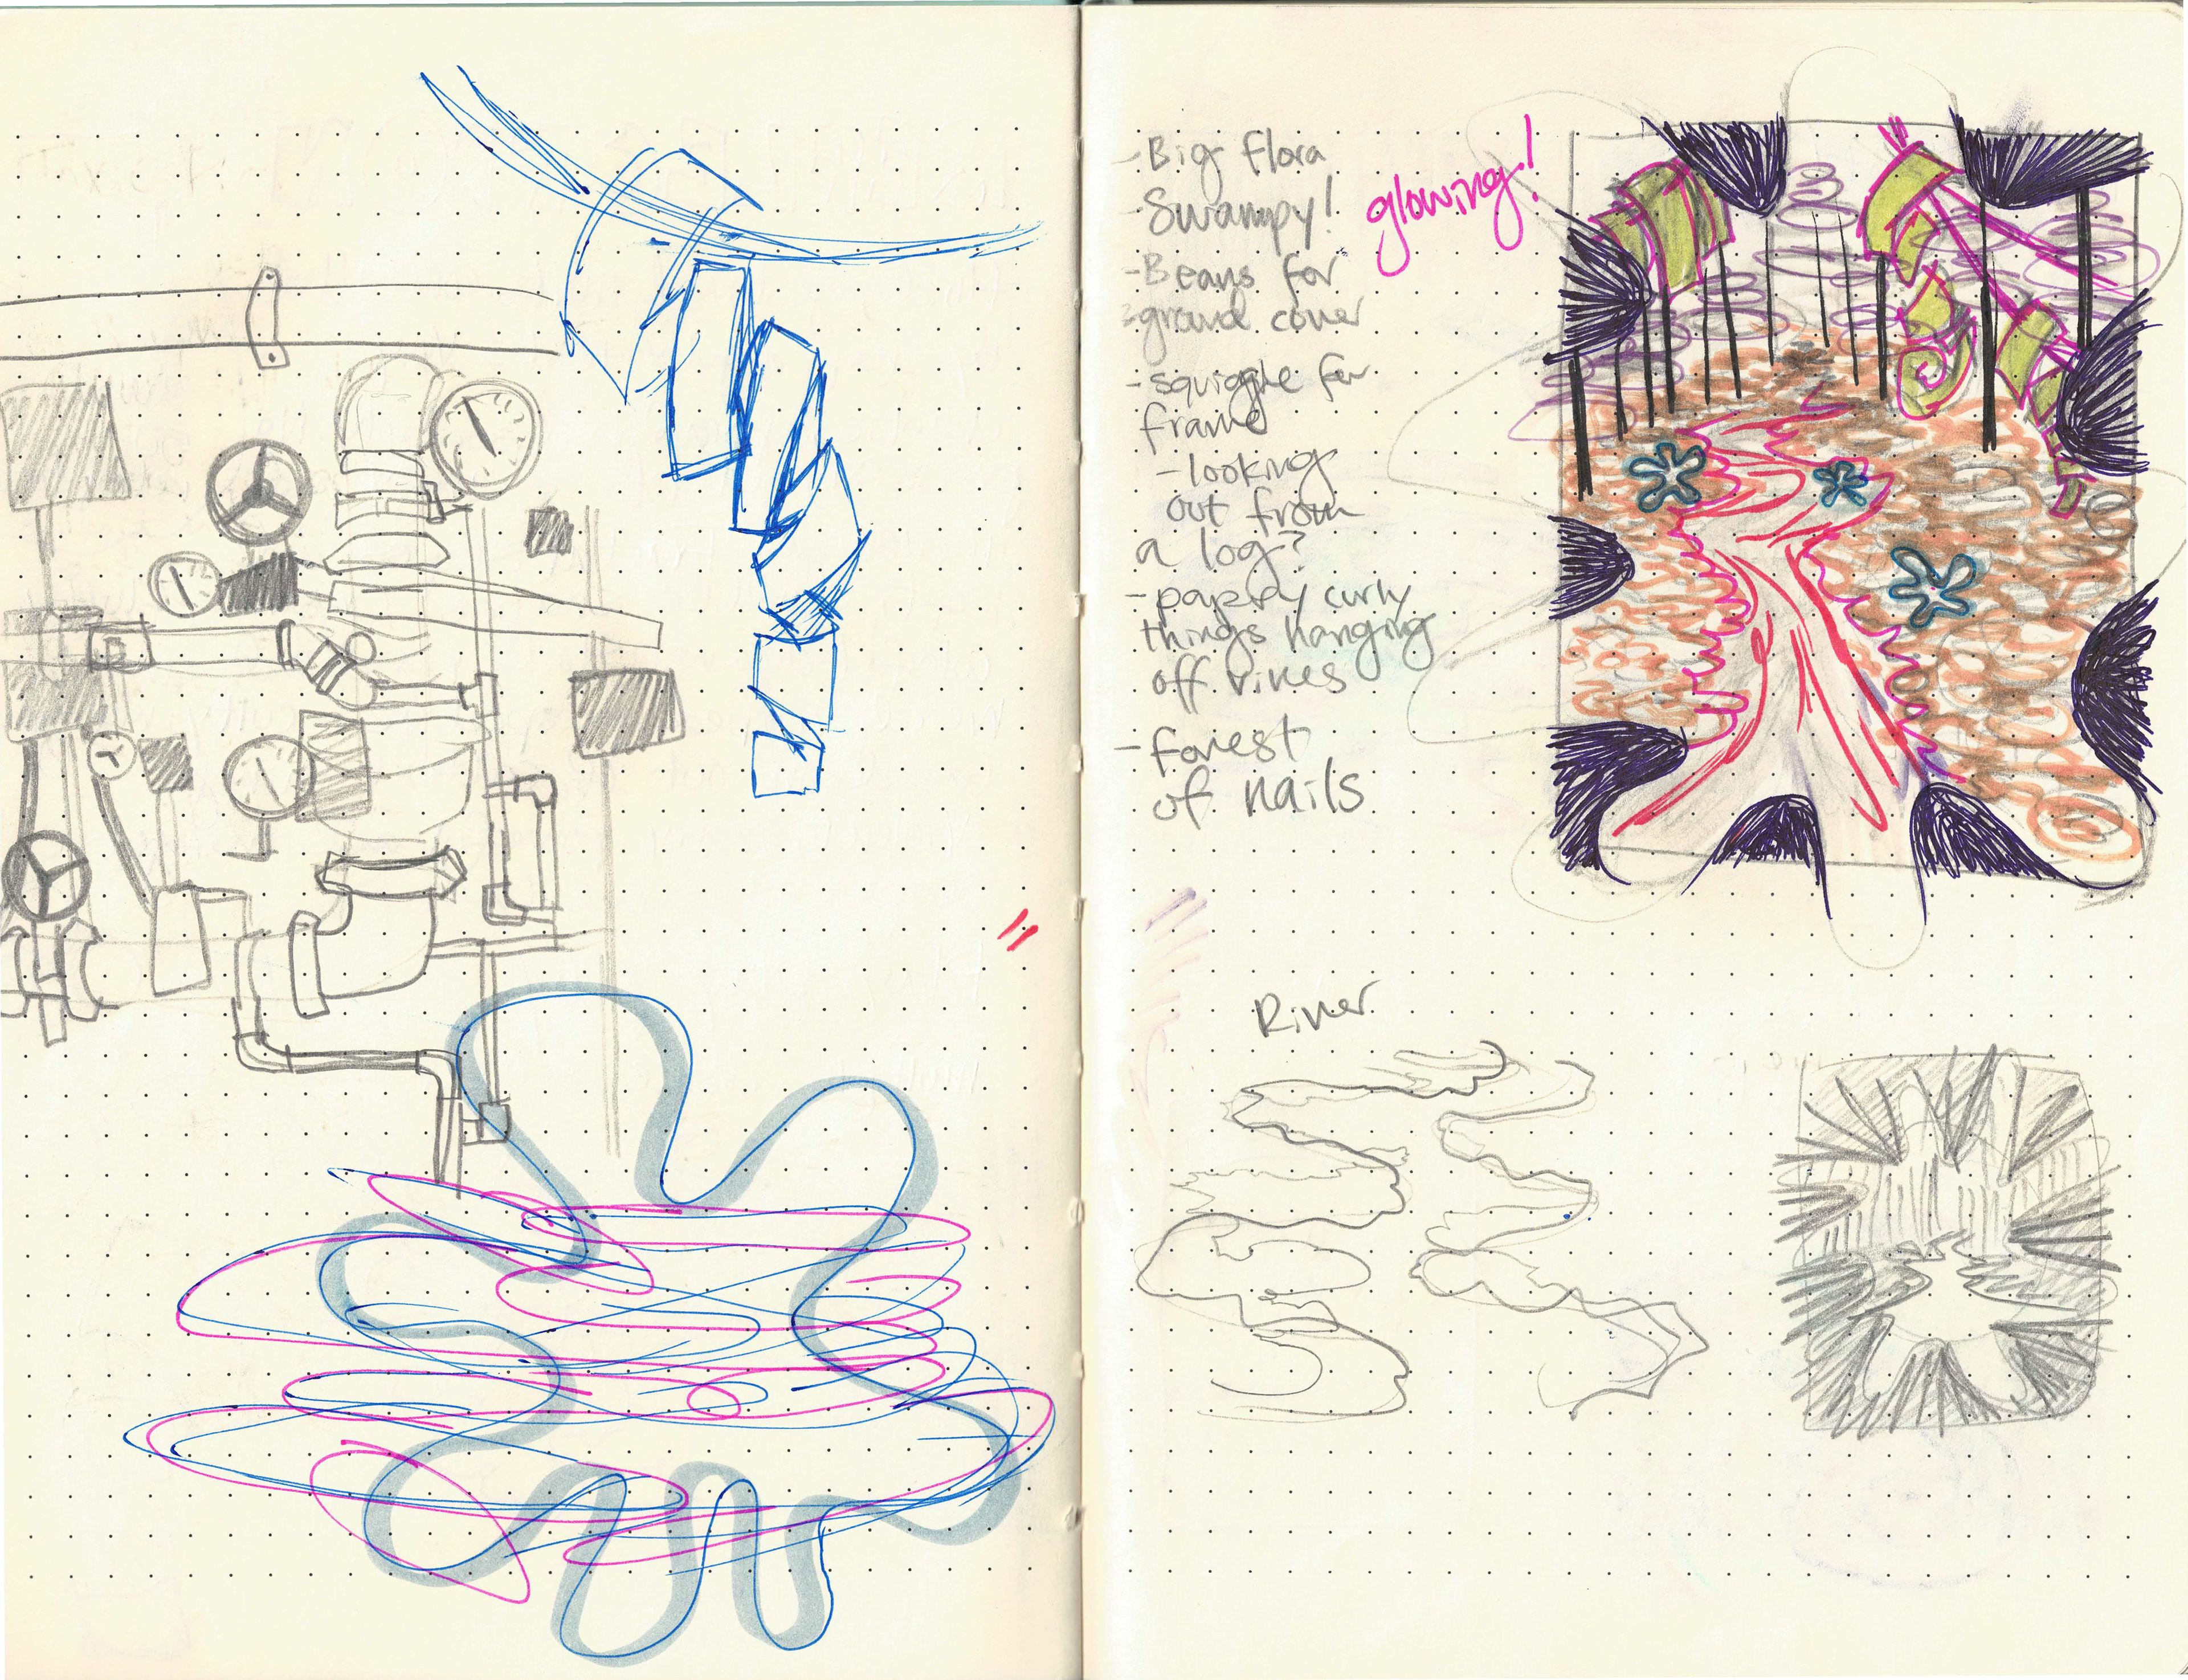 - Big flora
- Swampy!
glowing!
- Beans for
ground cover
- squiggle for
frame
- looking
out from
a log?
- papery curly
things hanging
off vines
- forest
of nails
River